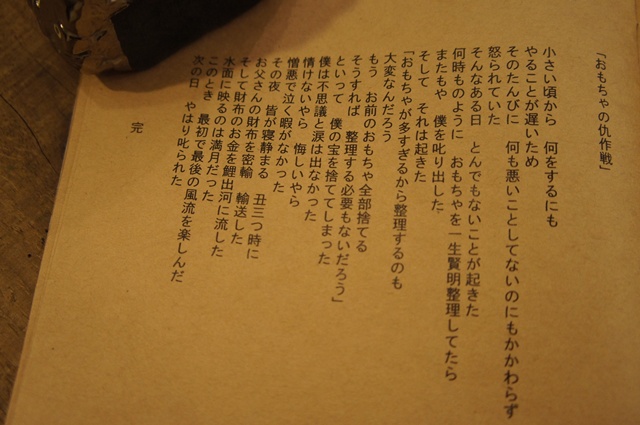 「おもちゃの仇作戦」
小さい頃から　何をするにも
やることが遅いため
そのたんびに　何も悪いことしてないのにもかかわらず
怒られていた
そんなある日　とんでもないことが起きた
何時ものように　おもちゃを一生賢明整理してたら
またもや　僕を叱り出した
そして　それは起きた
「おもちゃが多すぎるから整理するのも
大変なんだろう
もう　お前のおもちゃ全部捨てる
そうすれば　整理する必要もないだろう」
といって　僕の宝を捨ててしまった
僕は不思議と涙は出なかった
情けないやら　悔しいやら
憎悪で泣く暇がなかった
その夜　皆が寝静まる　丑三つ時に
お父さんの財布を密輸　輸送した
そして財布のお金を鯉出河に流した
水面に映るのは満月だった
このとき　最初で最後の風流を楽しんだ
次の日　やはり叱られた
完